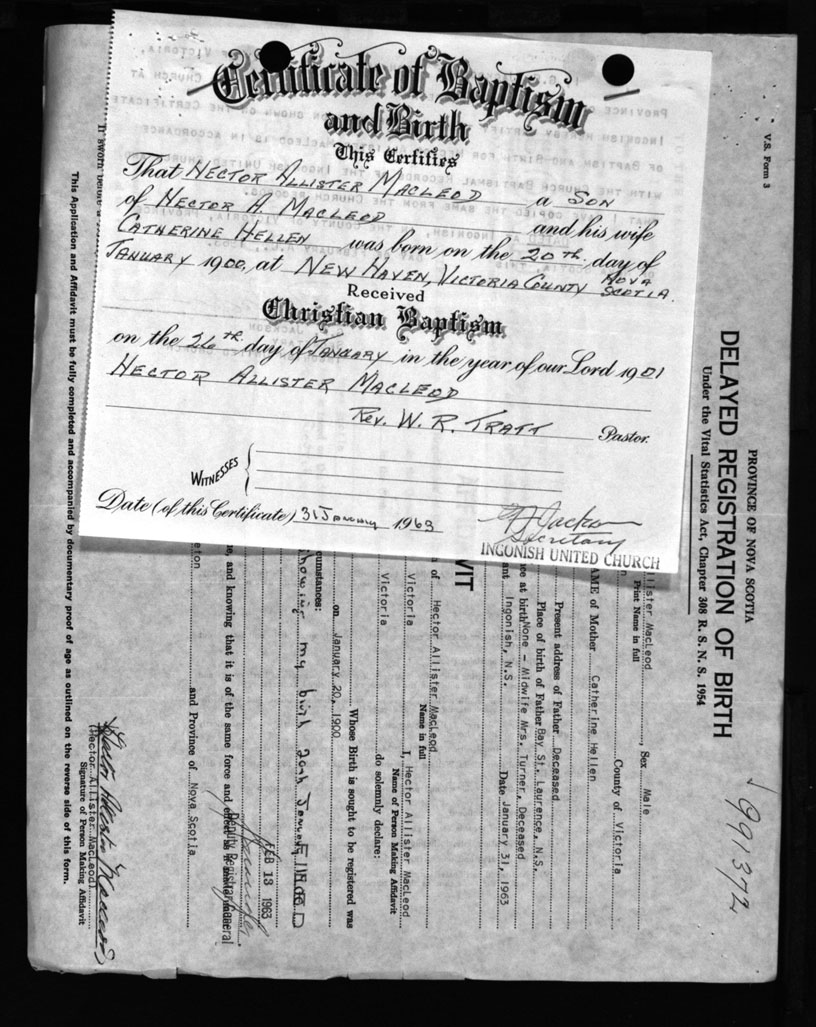 Certificate of Baptism
and Birth
This Certifies
That HECTOR ALLISTER MACLEOD a SON
of HECTOR A. MACLEOD and his wife
CATHERINE HELLEN was born on the 20th day of
JANUARY 1900, at NEW HAVEN, VICTORIA COUNTY NOVA SCOTIA.
Received
Christian Baptism
on the 26th day of JANUARY in the year of our Lord 1901
HECTOR ALLISTER MACLEOD
Rev. W. R. TRATT Pastor.
WITNESSES
Date (of this Certificate) 31 January 1963
Jackson
Secretary
INGONISH UNITED CHURCH
V.S. Form 3
PROVINCE OF NOVA SCOTIA
DELAYED REGISTRATION OF BIRTH
Under the Vital Statistics Act, Chapter 308 R. S. N. S. 1954
991372
llister MacLeod, Sex Male
Print Name in full
County of Victoria
AME of Mother Catherine Hellen
Present address of Father Deceased
Place of birth of Father Bay St. Laurence, N.S.
ce at birth None - Midwife Mrs. Turner, Deceased
ant Ingonish, N.S. Date January 31, 1963
VIT
of Hector Allister MacLeod
Name in full
Victoria I, Hector Allister MacLeod
Name of Person Making Affidavit
Victoria do solemnly declare:
Whose Birth is sought to be registered was
on January 20, 1900
cumstances:
howing my birth 20th January 1900 A D
e, and knowing that it is of the same force and effect as if made
FEB 13 1963
Deputy Registrar General
eton and Province of Nova Scotia
(Hector Allister MacLeod)
Signature of Person Making Affidavit
This Application and Affidavit must be fully completed and accompanied by documentary proof of age as outlined on the reverse side of this form.